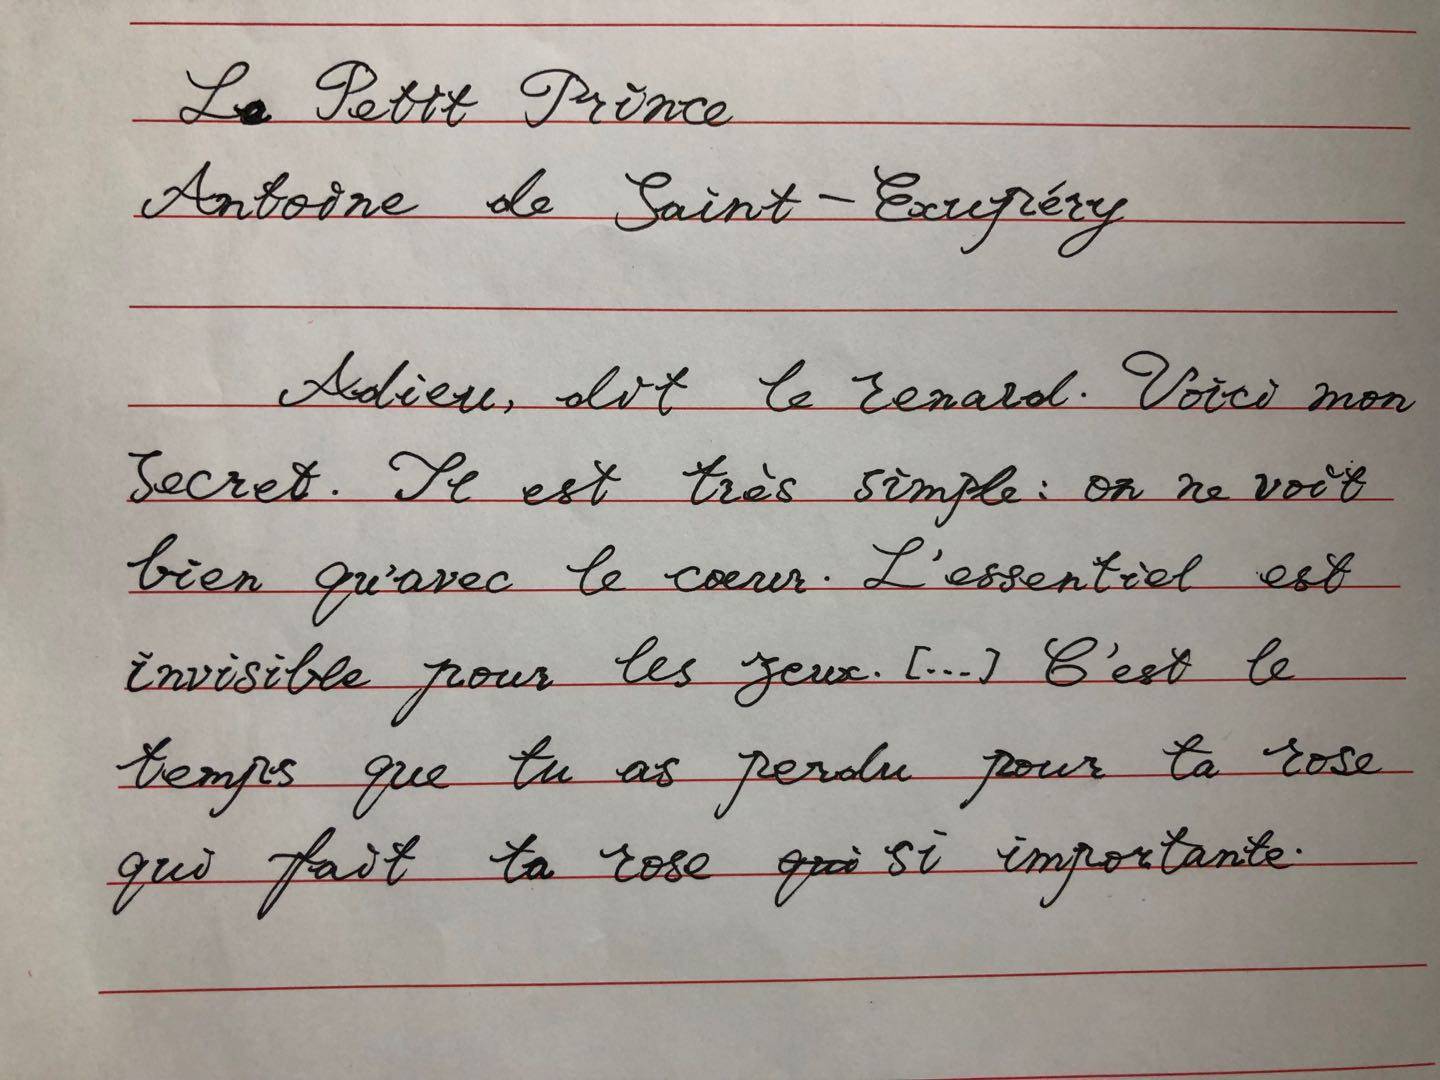 Le Petit Prince
Antoine de Saint-Exupéry
Adieu, dit le renard. Voici mon
secret. Il est très simple: on ne voit
bien qu'avec le cœur. L'essentiel est
invisible pour les yeux. [...] C'est le
temps que tu as perdu pour ta rose
qui fait ta rose si importante.